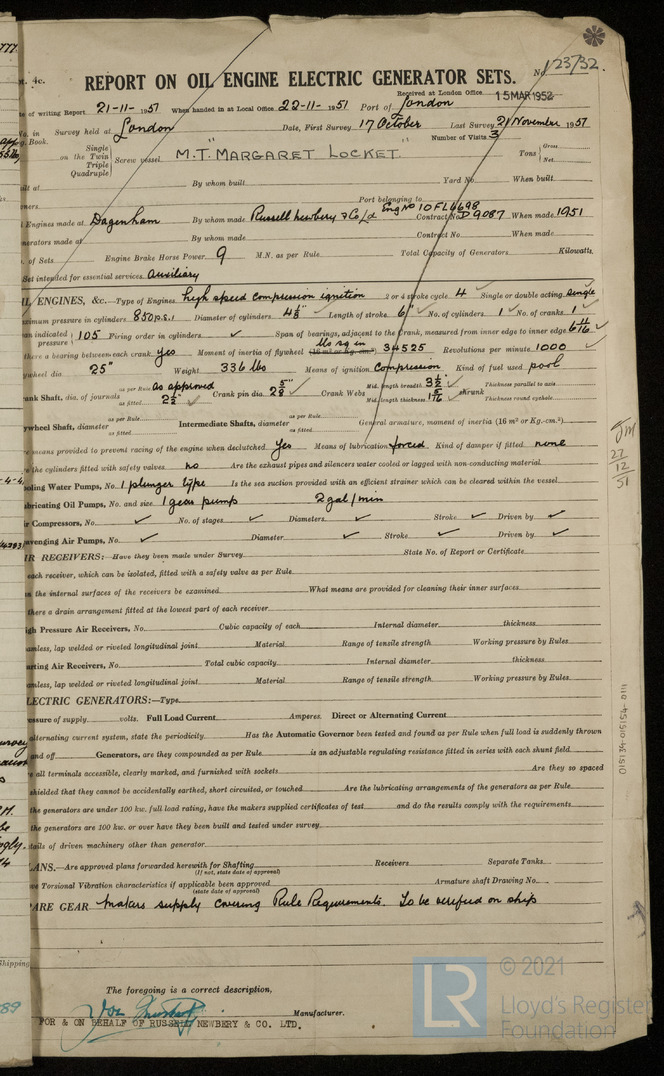 REPORT ON OIL ENGINE ELECTRIC GENERATOR SETS. No. 123732.
Received at London Office 15 MAR 1952
te of writing Report 21-11-1951 When handed in at Local Office 22-11-1951 Port of London
No. in Survey held at London Date, First Survey 17 October Last Survey 21 November 1951
g. Book. Number of Visits 3
Single on the Twin Triple Quadruple Screw vessel M.T. "MARGARET LOCKET" Tons Gross Net
ilt at By whom built Yard No. When built
ners Port belonging to
Engines made at Dagenham By whom made Russell Newbery & Co Ld Eng No 10FL6698 Contract No. D9087 When made 1951
nerators made at By whom made Contract No. When made
. of Sets Engine Brake Horse Power 9 M.N. as per Rule Total Capacity of Generators Kilowatts.
Set intended for essential services auxiliary
IL ENGINES, &c.—Type of Engines high speed compression ignition 2 or 4 stroke cycle 4 Single or double acting single
ximum pressure in cylinders 850 p.s.i Diameter of cylinders Length of stroke 6" No. of cylinders 1 No. of cranks 1
an indicated pressure 105 Firing order in cylinders ✓ Span of bearings, adjacent to the Crank, measured from inner edge to inner edge
there a bearing between each crank yes Moment of inertia of flywheel (16 m² or Kg.-cm.²) lbs sq in 34525 Revolutions per minute 1000
ywheel dia. 25" Weight 336 lbs Means of ignition compression Kind of fuel used pool
rank Shaft, dia. of journals as per Rule as approved as fitted 2½" Crank pin dia. Crank Webs Mid. length breadth 3½" Mid. length thickness shrunk Thickness parallel to axis Thickness round eyehole
ywheel Shaft, diameter as per Rule as fitted Intermediate Shafts, diameter as per Rule as fitted General armature, moment of inertia (16 m² or Kg.-cm.²)
re means provided to prevent racing of the engine when declutched Yes Means of lubrication forced Kind of damper if fitted none
e the cylinders fitted with safety valves no Are the exhaust pipes and silencers water cooled or lagged with non-conducting material
oling Water Pumps, No. 1 plunger type Is the sea suction provided with an efficient strainer which can be cleared within the vessel
bricating Oil Pumps, No. and size 1 gear pump 2 gal/min
ir Compressors, No. ✓ No. of stages ✓ Diameters ✓ Stroke ✓ Driven by ✓
avenging Air Pumps, No. ✓ Diameter ✓ Stroke ✓ Driven by ✓
IR RECEIVERS:—Have they been made under Survey State No. of Report or Certificate
each receiver, which can be isolated, fitted with a safety valve as per Rule
n the internal surfaces of the receivers be examined What means are provided for cleaning their inner surfaces
there a drain arrangement fitted at the lowest part of each receiver
igh Pressure Air Receivers, No. Cubic capacity of each Internal diameter thickness
amless, lap welded or riveted longitudinal joint Material Range of tensile strength Working pressure by Rules
arting Air Receivers, No. Total cubic capacity Internal diameter thickness
amless, lap welded or riveted longitudinal joint Material Range of tensile strength Working pressure by Rules
LECTRIC GENERATORS:—Type
essure of supply volts. Full Load Current Amperes. Direct or Alternating Current
alternating current system, state the periodicity Has the Automatic Governor been tested and found as per Rule when full load is suddenly thrown
and off Generators, are they compounded as per Rule is an adjustable regulating resistance fitted in series with each shunt field
e all terminals accessible, clearly marked, and furnished with sockets Are they so spaced
shielded that they cannot be accidentally earthed, short circuited, or touched Are the lubricating arrangements of the generators as per Rule
the generators are under 100 kw. full load rating, have the makers supplied certificates of test and do the results comply with the requirements
the generators are 100 kw. or over have they been built and tested under survey
tails of driven machinery other than generator
LANS.—Are approved plans forwarded herewith for Shafting Receivers Separate Tanks
(If not, state date of approval)
ve Torsional Vibration characteristics if applicable been approved Armature shaft Drawing No.
(state date of approval)
ARE GEAR makers supply covering Rule Requirements. To be verified on ship
The foregoing is a correct description,
Manufacturer.
FOR & ON BEHALF OF RUSSELL NEWBERY & CO. LTD.
27
12
51
015134-015154-0111
LR
© 2021
Lloyd's Register
Foundation